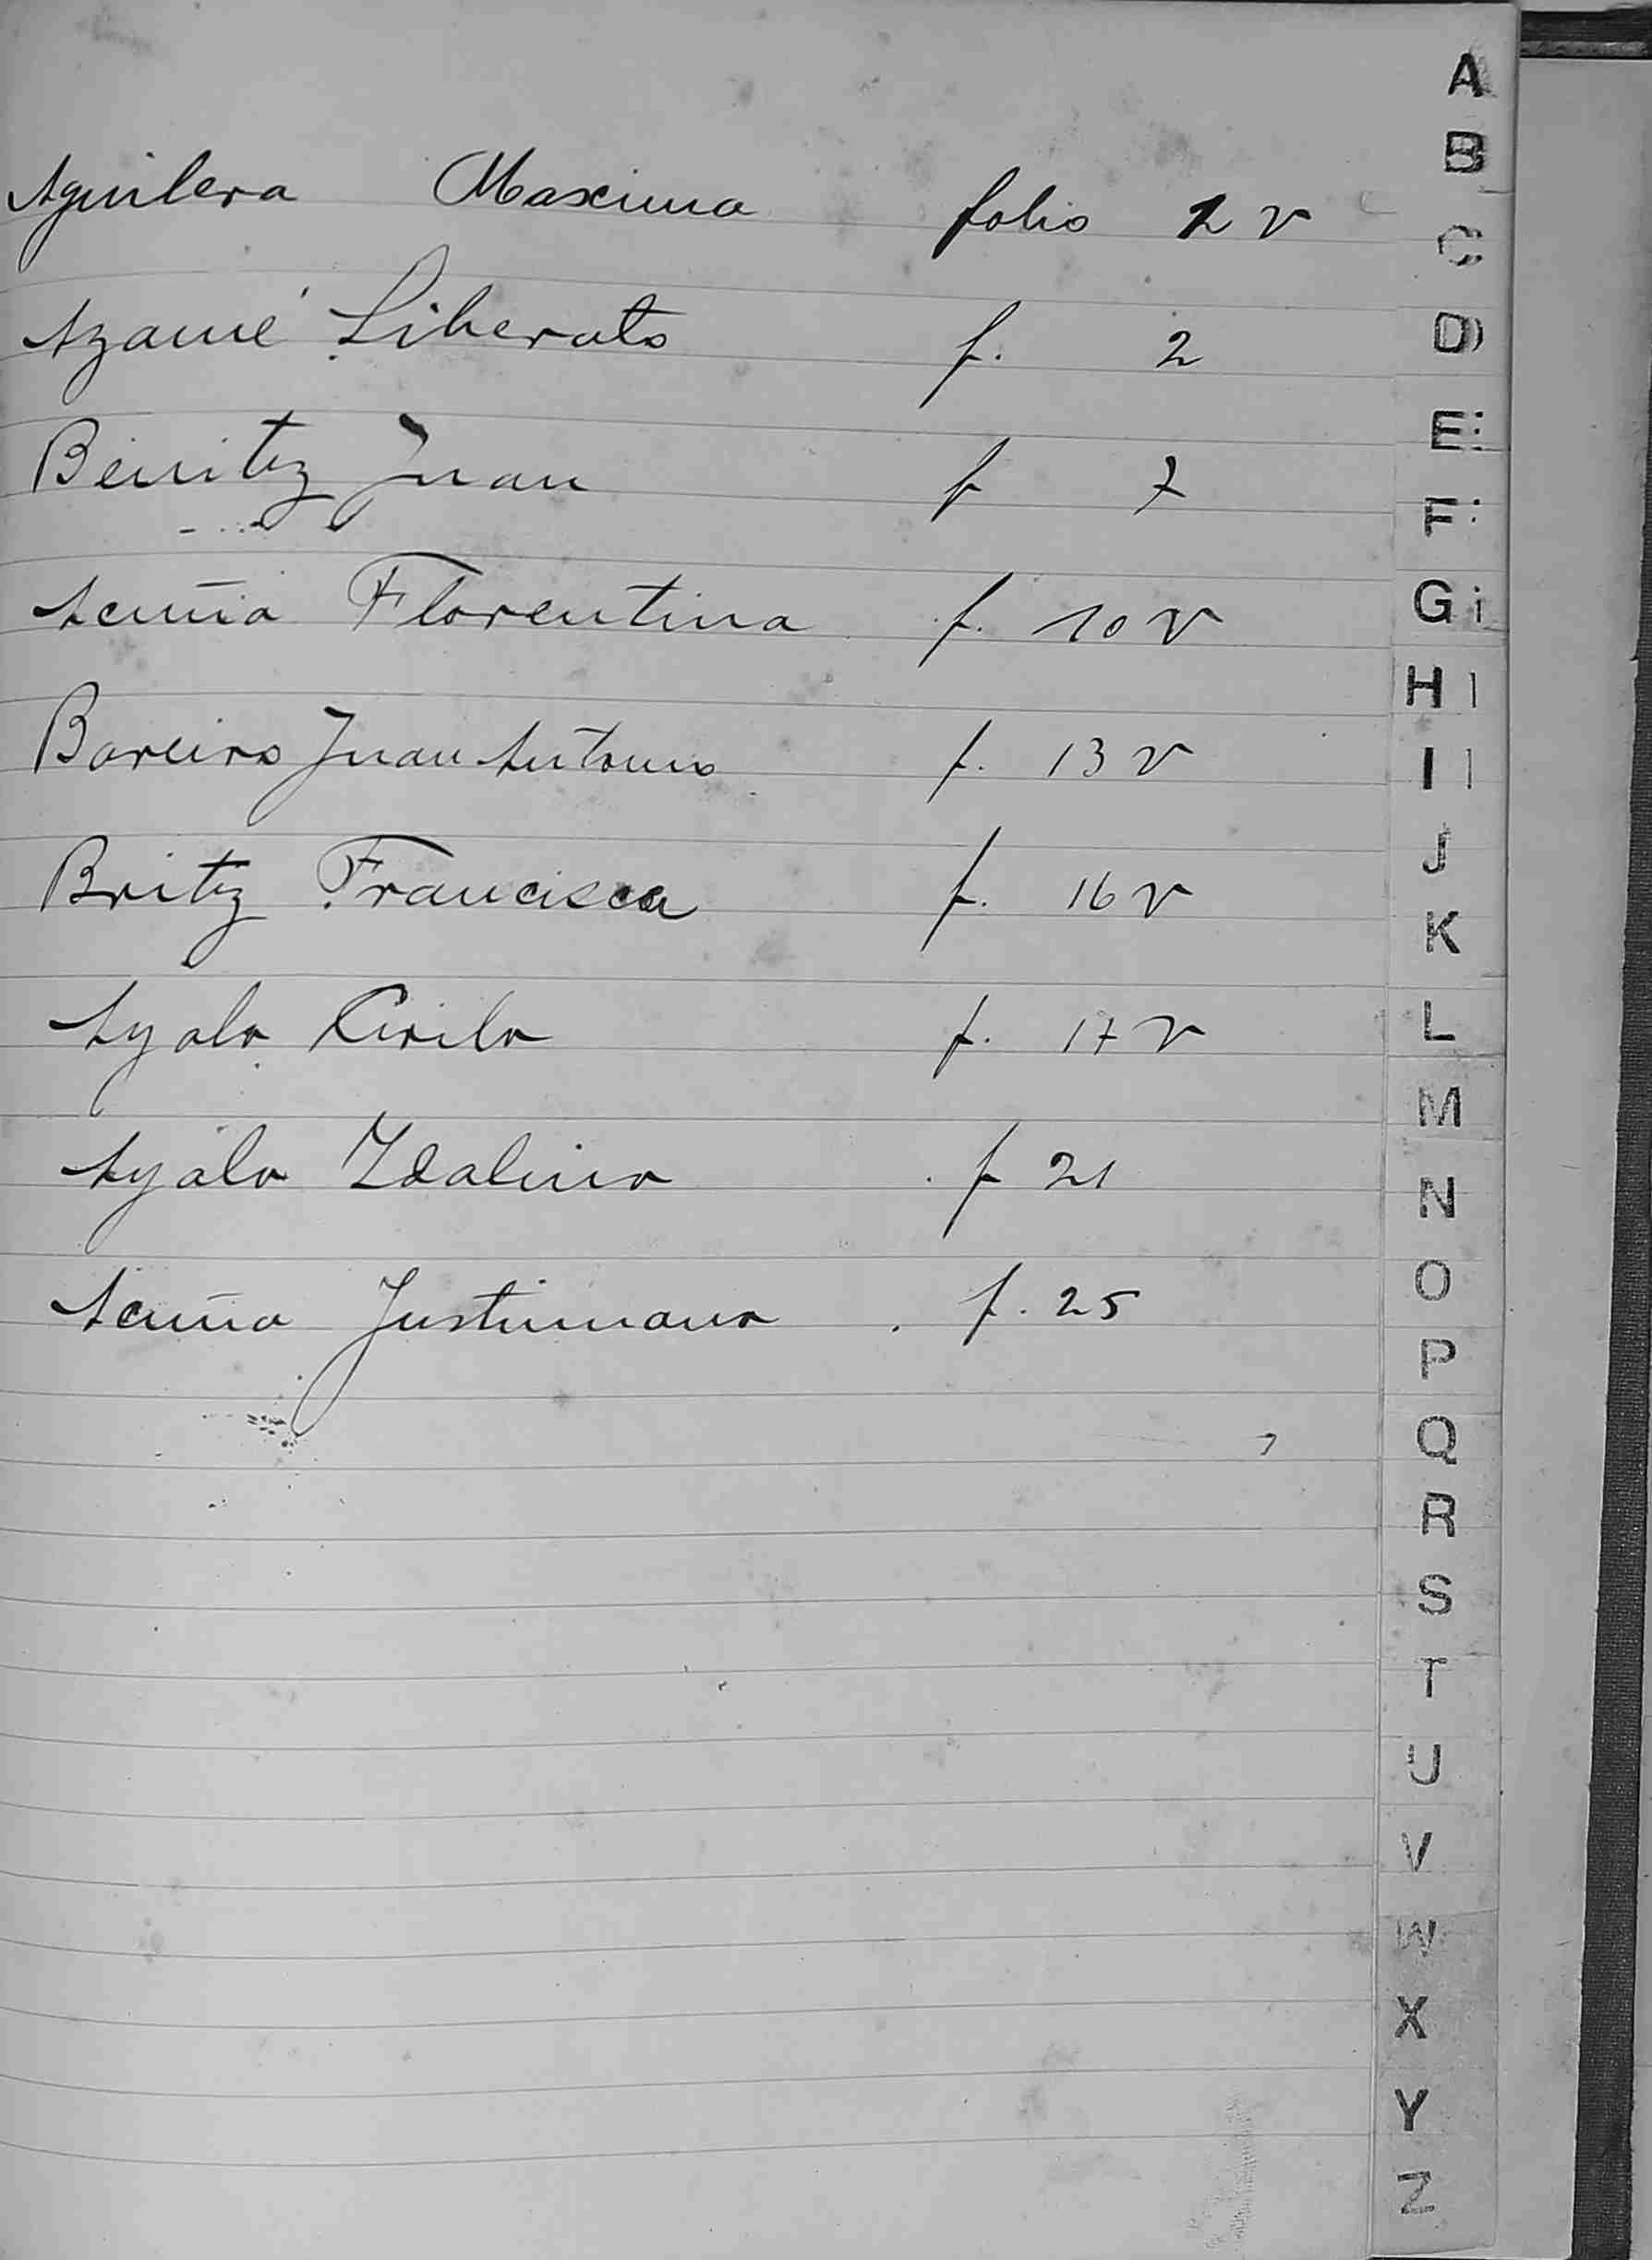 Aguilera Maxima folio 1 v
Azamé Liberato f. 2
Benitez Juan f 7
Acuña Florentina f. 10 v
Bareiro Juan Antonio f. 13 v
Britez Francisca f. 16 v
Ayala Cirila f. 17 v
Ayala Idalina f 21
Acuña Justiniana f. 25
A
B
C
D
E
F
G
H
I
J
K
L
M
N
O
P
Q
R
S
T
U
V
W
X
Y
Z